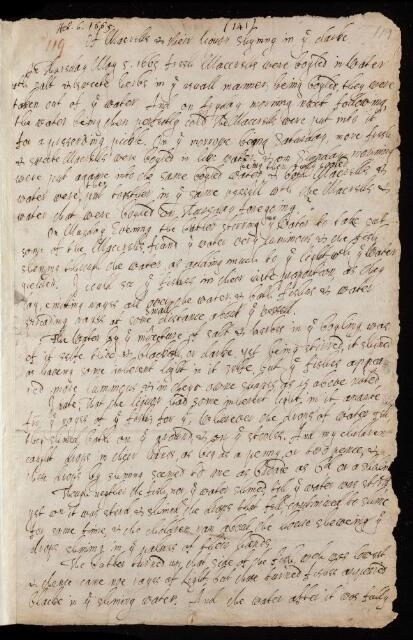 Feb. 6. 1665. (141)
119
Of Macrells & their liquor shyning in ye darke
On Thursday May 5. 1665 fresh Maccerels were boyled in water
with salt & sweete herbs in ye usuall manner, being boyled they were
taken out of ye water. And on fryday morning next following
the water being then perfectly cold the Maccerels were put into it
for a preserving pickle. On ye morrow being Saturday, more fresh
Macrells were boyled in like water & on
were put againe into the same water, & both Macrells &
water were put together in ye same vessell with the Macrells &
water that were boyled on Thursday foregoing
On Munday Evening the stirring ye water to take out
some of the Macrells, found ye water very luminous & the fish
shyning through the water, as adding much to ye light wch ye water
yeilded. I could see ye fishes in their proportion, as they
lay, emiting rayes all over the water, & both fishes & water
spreading rayes at some small distance about ye vessell.
The water by ye mixture of salt & herbes in ye boyling was
of it selfe thick & blackish or darke, yet being stirred, it shined
as having some inherent light in it selfe, but ye fishes appea
red more luminous & in there owne shapes as is above noted
I note, that the liquor had some inherent light in it
from ye rayes of ye fishes, for ye, wherever the drops of water fell
they shined, both on ye ground & on ye stooles. And my children
caught drops in their hands as big as a peny, or two pence, &
then drops by shyning seemed to me as broade as 6d or a shilling
Though neither the fish, nor ye water shined till ye water was stirred
yet wn it was stird & shined, the drops that fell, continued to shine
for some time, & the children ran about the house shewing ye
drops shyning in ye palmes of their hands.
The turned up that side of the fish wch was lowest
& thence came no rayes of light, but those turned fishes appeared
blacke in ye shining water. And the water after it was fully